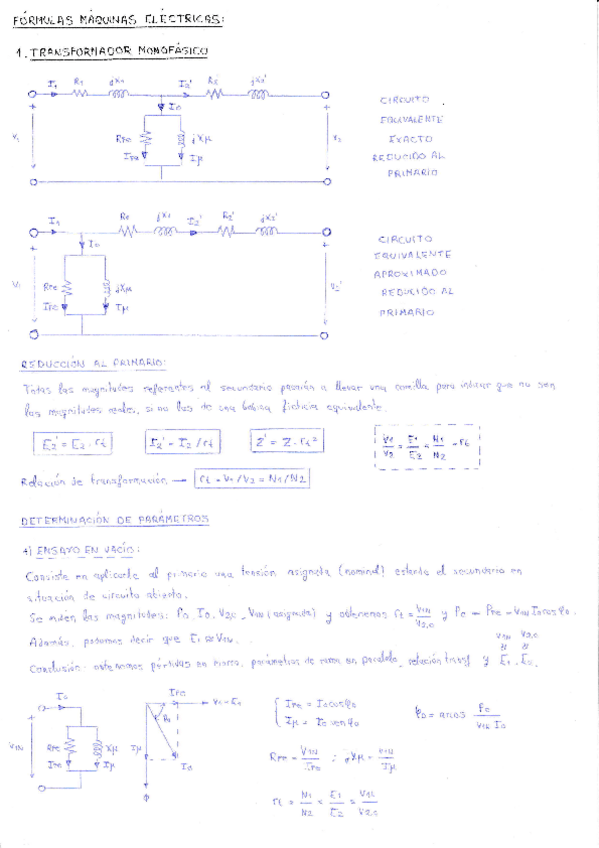 FÓRMULAS MÁQUINAS ELÉCTRICAS:
1. TRANSFORMADOR MONOFÁSICO
I1 R1 jX1 I2' R2' jX2'
I0
V1 RFe jXμ
IFe Iμ
CIRCUITO
EQUIVALENTE
EXACTO
REDUCIDO AL
PRIMARIO
I1 R1 jX1 I2' R2' jX2'
I0
V1 RFe jXμ V2'
IFe Iμ
CIRCUITO
EQUIVALENTE
APROXIMADO
REDUCIDO AL
PRIMARIO
REDUCCIÓN AL PRIMARIO:
Todas las magnitudes referentes al secundario pasarán a llevar una comilla para indicar que no son
las magnitudes reales, si no las de una bobina ficticia equivalente.
E2' = E2 · rt
I2' = I2 / rt
Z' = Z · rt²
V1/V2 = E1/E2 = N1/N2 = rt
Relación de transformación → rt = V1/V2 = N1/N2
DETERMINACIÓN DE PARÁMETROS
ENSAYO EN VACÍO:
Consiste en aplicarle al primario una tensión asignada (nominal) estando el secundario en
situación de circuito abierto.
Se miden las magnitudes: P0, I0, V20, V1N (asignada) y obtenemos rt = V1N/V2,0 y P0 = PFe = V1N I0 cos φ0.
Además, podemos decir que E1 ≈ V1N.
V1N V2,0
Conclusión: obtenemos pérdidas en hierro, parámetros de rama en paralelo, relación transf y E1, E2.
I0
V1N RFe jXμ
IFe Iμ
IFe V1 = E1
φ0
Iμ I0
Φ
IFe = I0 cos φ0
Iμ = I0 sen φ0
φ0 = arcos P0/(V1N I0)
RFe = V1N/IFe ; jXμ = V1N/Iμ
rt = N1/N2 = E1/E2 = V1N/V2,0